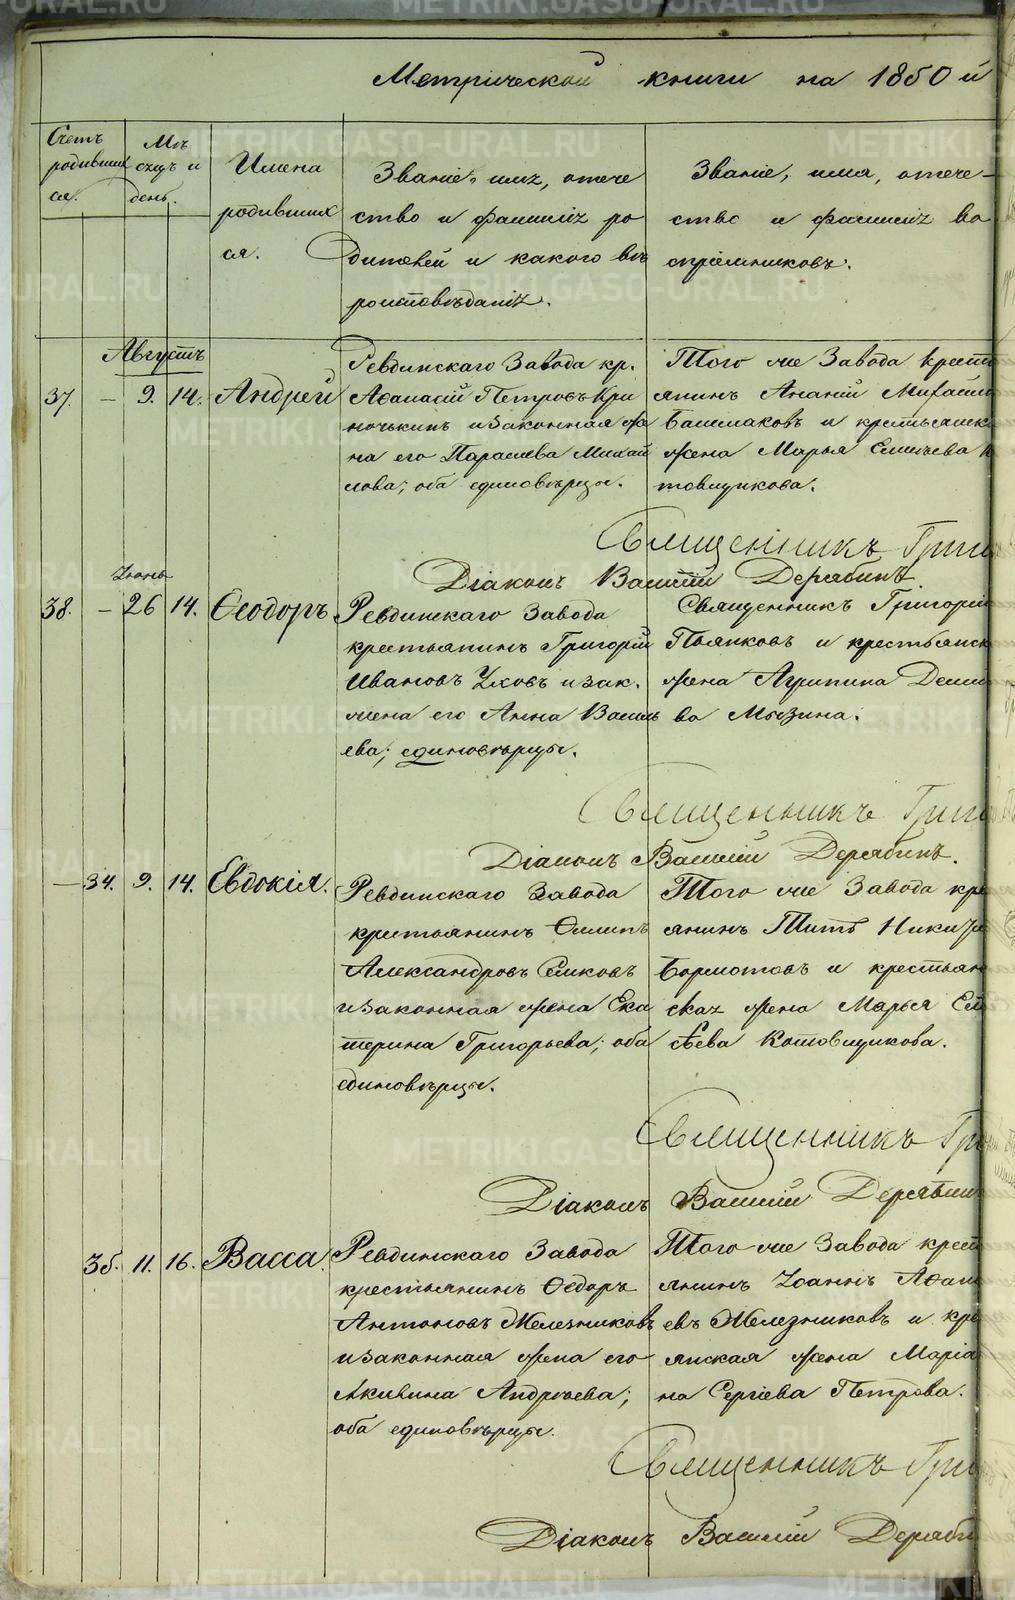 Метрической книги на 1850 й
Счетъ
родивших
ся.
Мѣ
сяцъ и
день.
Имена
родивших
ся.
Званіе, имя, отече
ство и фамилія ро
дителей и какого вѣ
роисповѣданія.
Званіе, имя, отече-
ство и фамилія во
спріемниковъ.
Августъ
37. – 9. 14. Андрей
Ревдинскаго Завода кр.
Аѳанасій Петровъ Кри
ночькинъ и законная же
на его Параскева Михай
лова; оба единовѣрцы.
Того же Завода крест
янинъ Ананій Михайло
Башмаковъ и крестьянск
жена Марья Елисѣева К
товщикова.
Священникъ Григ
Діаконъ Василій Дерябинъ.
Іюнь
38. – 26 14. Ѳеодоръ
Ревдинскаго Завода
крестьянинъ Григорій
Ивановъ Уховъ и зак.
жена его Анна Василь
ева; единовѣрцы.
Священникъ Григорій
Поляковъ и крестьянск
жена Агрипина Деми
ва Мызина.
Священникъ Григ
Діаконъ Василій Дерябинъ.
– 34. 9. 14. Евдокія.
Ревдинскаго Завода
крестьянинъ Филипъ
Александровъ Елковъ
и законная жена Ека
терина Григорьева; оба
единовѣрцы.
Того же Завода кре
янинъ Титъ Никит
Бормотовъ и крестьян
ская жена Марья Ели
сѣева Котовщикова.
Священникъ Гри
Діаконъ Василій Дерябин
35. 11. 16. Васса.
Ревдинскаго Завода
крестьянинъ Ѳедоръ
Антоновъ Железниковъ
и законная жена его
Акилина Андреева;
оба единовѣрцы.
Того же Завода крест
янинъ Іоаннъ Аѳана
евъ Железниковъ и кре
янская жена Маріа
на Сергіева Петрова.
Священникъ Григ
Діаконъ Василій Деряби
METRIKI.GASO-URAL.RU